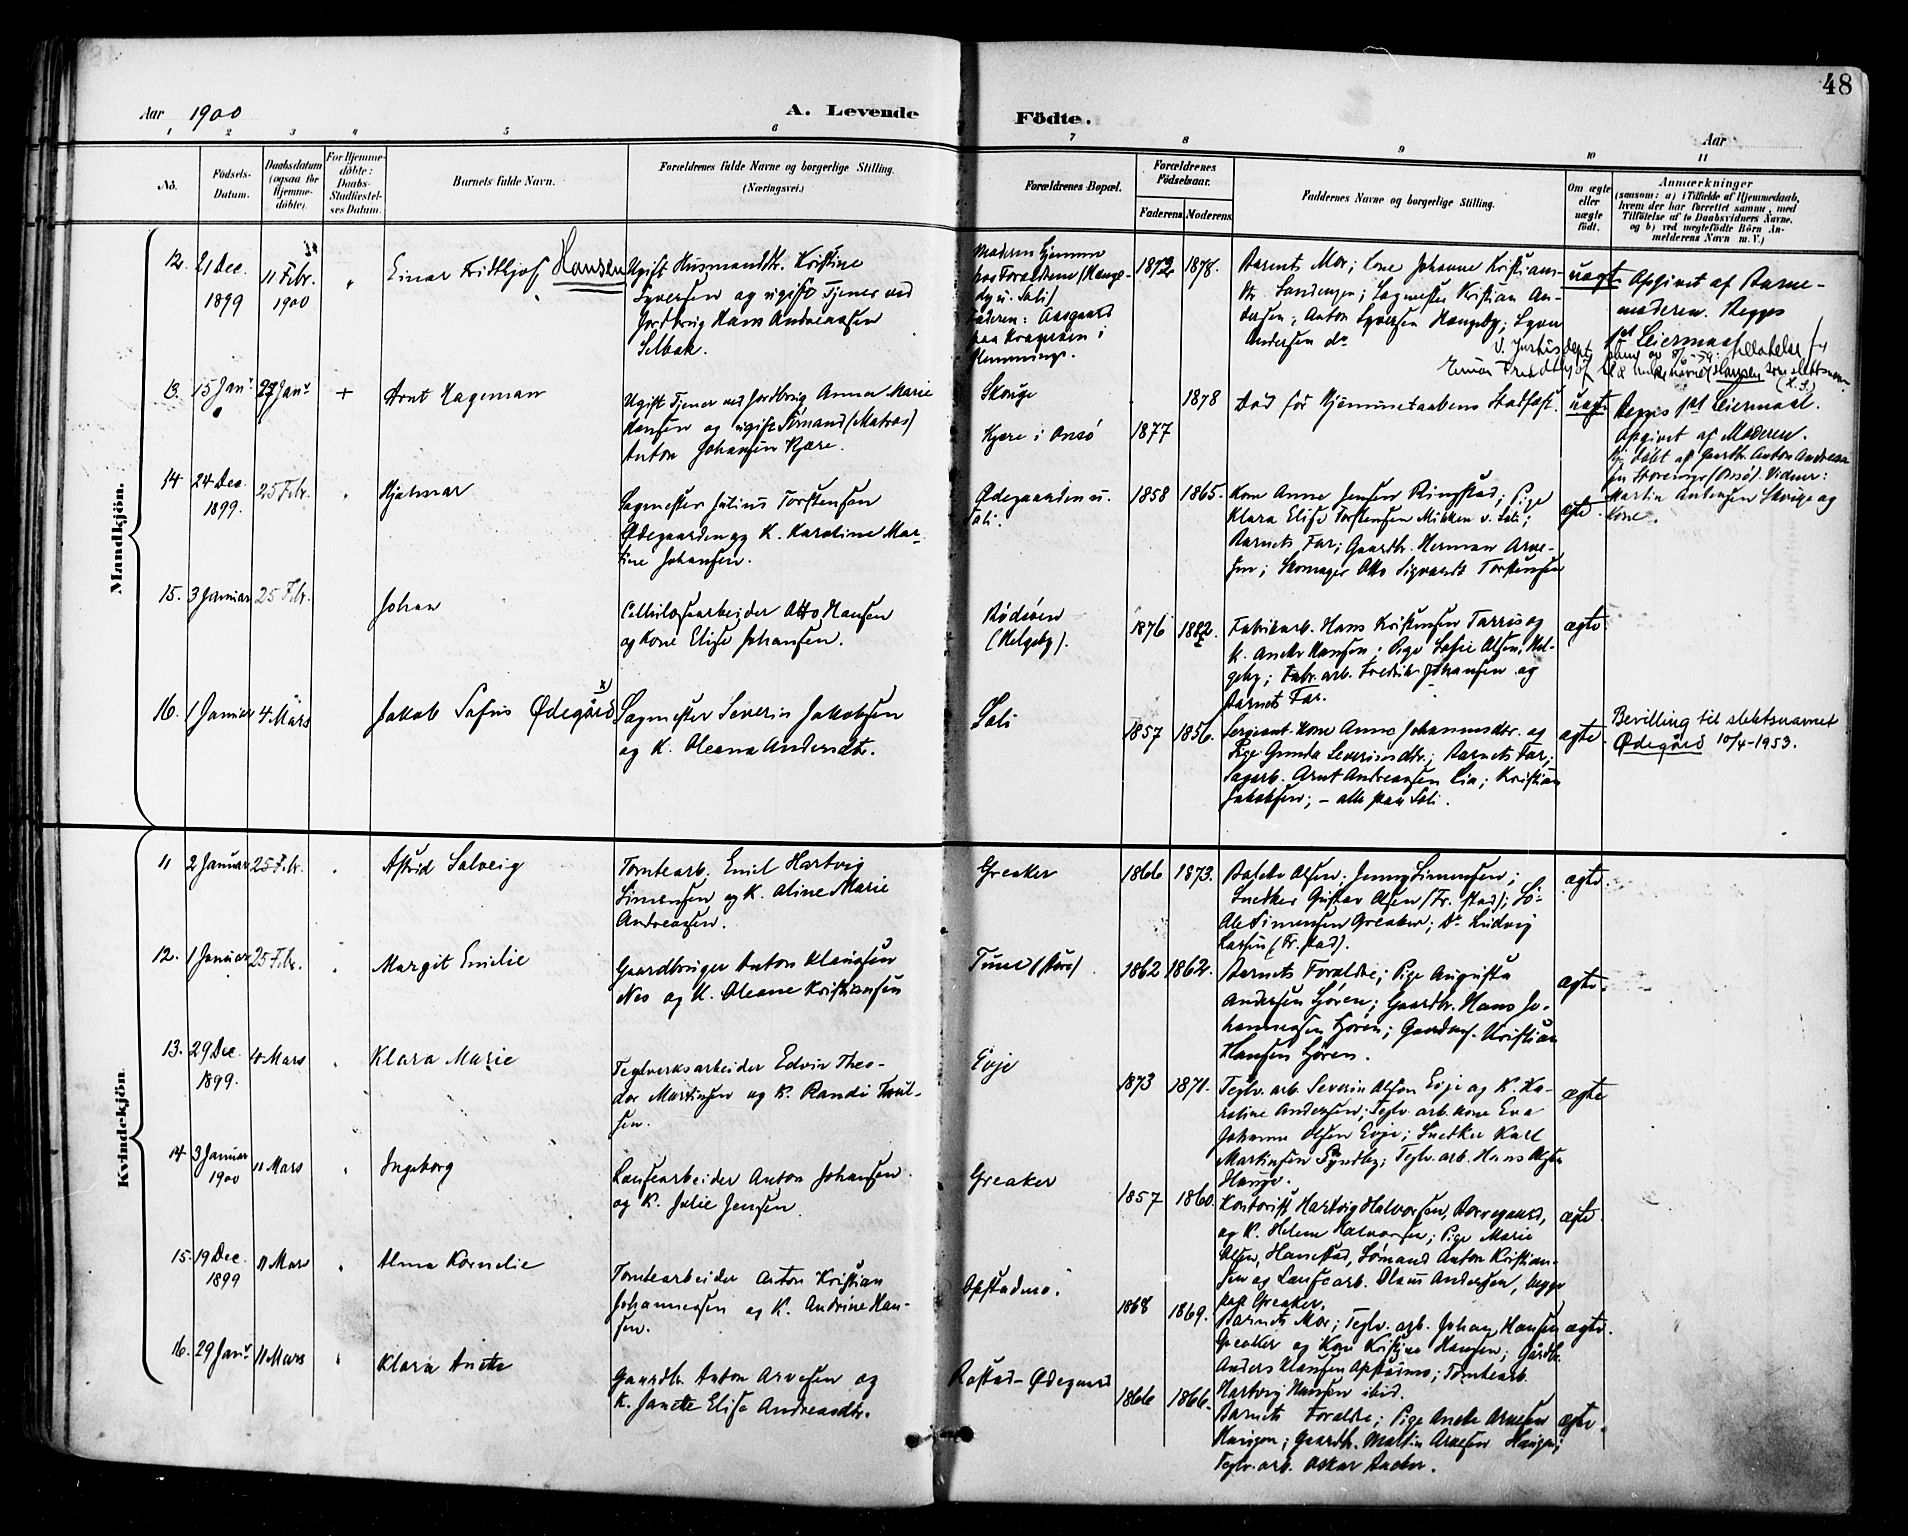 48
Aar 1900
A. Levende
Födte.
Aar
1 2 3 4 5 6
7 8 9 10 11
No.
Födsels-
Datum.
Daabsdatum
(ogsaa for
Hjemme-
döbte).
For Hjemme-
döbte:
Daabs-
Stadfæstel-
ses Datum.
Barnets fulde Navn.
Forældrenes fulde Navne og borgerlige Stilling.
(Næringsvei.)
Forældrenes Bopæl.
Forældrenes
Födselsaar.
Faderens. Moderens.
Faddernes Navne og borgerlige Stilling.
Om ægte
eller
uægte
født.
Anmærkninger
(saasom: a) i Tilfælde af Hjemmedaab,
hvem der har forrettet samme, med
Tilföielse af to Daabsvidners Navne,
og b) ved uægtefödte Börn An-
melderens Navn m. V.)
Mandkjön.
12. 21 Dec.
1899
11 Febr.
1900
Einar Fridthjof Hansen
Ugift Husmandsdtr. Kristine
Syversen og ugift Tjener ved
Jordbrug Hans Andreassen
Selbak.
Moderen Hjemme
hos Forældrene
Faderen: Aasgaard
paa Kragerøen i
1872 1878.
Barnets Mor; Kone Johanne Kristians-
dtr. Sandengen; Sagmester Kristian An-
dersen; Anton Syversen Hangeby; Syver
Andersen do
uægte
Opgivet af Barne-
moderen. Begges
1ste Leiermaal
13. 15 Janr. 27 Janr +
Arnt Hageman
Ugift Tjener ved Jordbrug Anna Marie
Hansen og ugift Sømand (Matros)
Anton Johansen Kjære.
Skovge
Kjære i Onsø
1877 1878
Død før Hjemmedaabens Stadfæst.
uægte
Begges 1st Leiermaal.
Opgivet af Moderen.
Hj. døbt af Gaardbr. Anton Andrea-
sen (Onsø). Vidner:
Martin Antonsen Skovge og
Kone.
14. 24 Dec.
1899.
25 Febr.
Hjalmar
Sagmester Julius Torstensen
Ødegaarden og K. Karoline Mar-
tine Johansen.
Ødegaarden u.
Soli.
1858 1865.
Kone Anne Jensen Ringstad; Pige
Klara Elise Torstensen Mikken v. Soli;
Barnets Far; Gaardbr. Herman Arne-
sen; Skomager Otto Sigvardt Torstensen
ægte.
15. 3 Januar 25 Febr.
Johan
Cellulosearbeider Otto Hansen
og Kone Elise Johansen.
Rødsøen
(Helgeby).
1876 1882.
Fabrikarb. Hans Kristensen Tarris og
K. Anette Hansen; Pige Sofie Olsen, Hel-
geby; Fabr. arb. Fredrik Johansen og
Barnets Far.
ægte.
16. 1 Januar 4 Mars
Jakob Sofus Ødegård x)
Sagmester Severin Jakobsen
og K. Oleana Andersdtr.
Soli
1857 1856.
Sergeant. Kone Anne Johannesdtr. og
Pige Gunda Severinsdtr.; Barnets Far;
Sagarb. Arnt Andreassen Lia; Kristian
Jakobsen; – alle paa Soli.
ægte.
Bevilling til slektsnavnet
Ødegård 10/4-1953.
Kvindekjön.
11 2 Januar 25 Febr.
Astrid Solveig
Tomtearb. Emil Hartvig
Simensen og K. Aline Marie
Andreassen.
Greaker
1866 1873.
Olsen; Jenny Simensen;
Snedker Gustav Olsen (Fr. stad); Sø-
Ole Simensen Greaker; Do Ludvig
Larsen (Fr. stad).
ægte.
12. 1 Januar 25 Febr.
Margit Emilie
Gaardbruger Anton Klausen
Nes og K. Oleane Kristiansen
Tune
1862 1862.
Barnets Forældre; Pige Augusta
Andersen Gjøren; Gaardbr. Hans Jo-
hannesen Gjøren; Gaardm. Kristian
Hansen Gjøren.
ægte.
13. 29 Dec.
1899.
4 Mars
Klara Marie
Teglverksarbeider Edvin Theo-
dor Martinsen og K. Randi Paul-
sen.
Evje
1873 1871.
Teglv. arb. Severin Olsen Evje og K. Ka-
roline Andersen; Teglv. arb. kone Eva
Johanne Olsen Evje; Snedker Karl
Martinsen Sundby; Teglv. arb. Hans Olsen
Hauge.
ægte
14 3 Januar
1900
11 Mars
Ingeborg
Lensearbeider Anton Johansen
og K. Julie Jensen.
Greaker
1857 1860.
Kontorist Hartvig Halvorsen, Borregaard,
og K. Helene Halvorsen; Pige Marie
Olsen, Hanestad, Sømand Anton Kristian-
sen og Lensearb. Olaus Andersen, begge
paa Greaker.
ægte.
15. 19 Dec.
1899
11 Mars
Alma Kornelie
Tomtearbeider Anton Kristian
Johannessen og K. Andrine Han-
sen.
Opstadmo.
1868 1869.
Barnets Mor; Teglv. arb. Johan Hansen
Greaker og Kone Kristine Hansen; Gårdbr.
Anders Klausen Opstadmo; Tomtearb.
Hartvig Hansen ibid.
ægte.
16. 29 Janr 11 Mars
Klara Anette
Gaardbr. Anton Arvesen og
K. Janette Elise Andreasdtr.
Rostad-Ødegaard
1866 1866.
Barnets Forældre; Pige Anette Arvesen
Haugen; Gaardbr. Martin Arvesen Haugen;
Teglv. arb. Oskar
ægte.